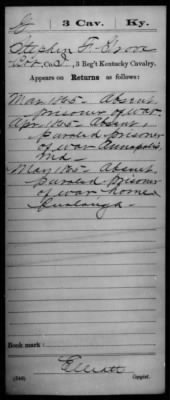 G | 3 Cav. | Ky.
Stephen F. Grove
Co. , 3 Reg't Kentucky Cavalry.
Appears on
Returns as follows:
Mar. 1865- Absent
Prisoner of war.
Apr. 1865- Absent,
paroled prisoner
of war Annapolis,
Md.
May 1865- Absent
paroled prisoner
of war home
furlough.
Book mark:
Elliott
(546) Copyist.